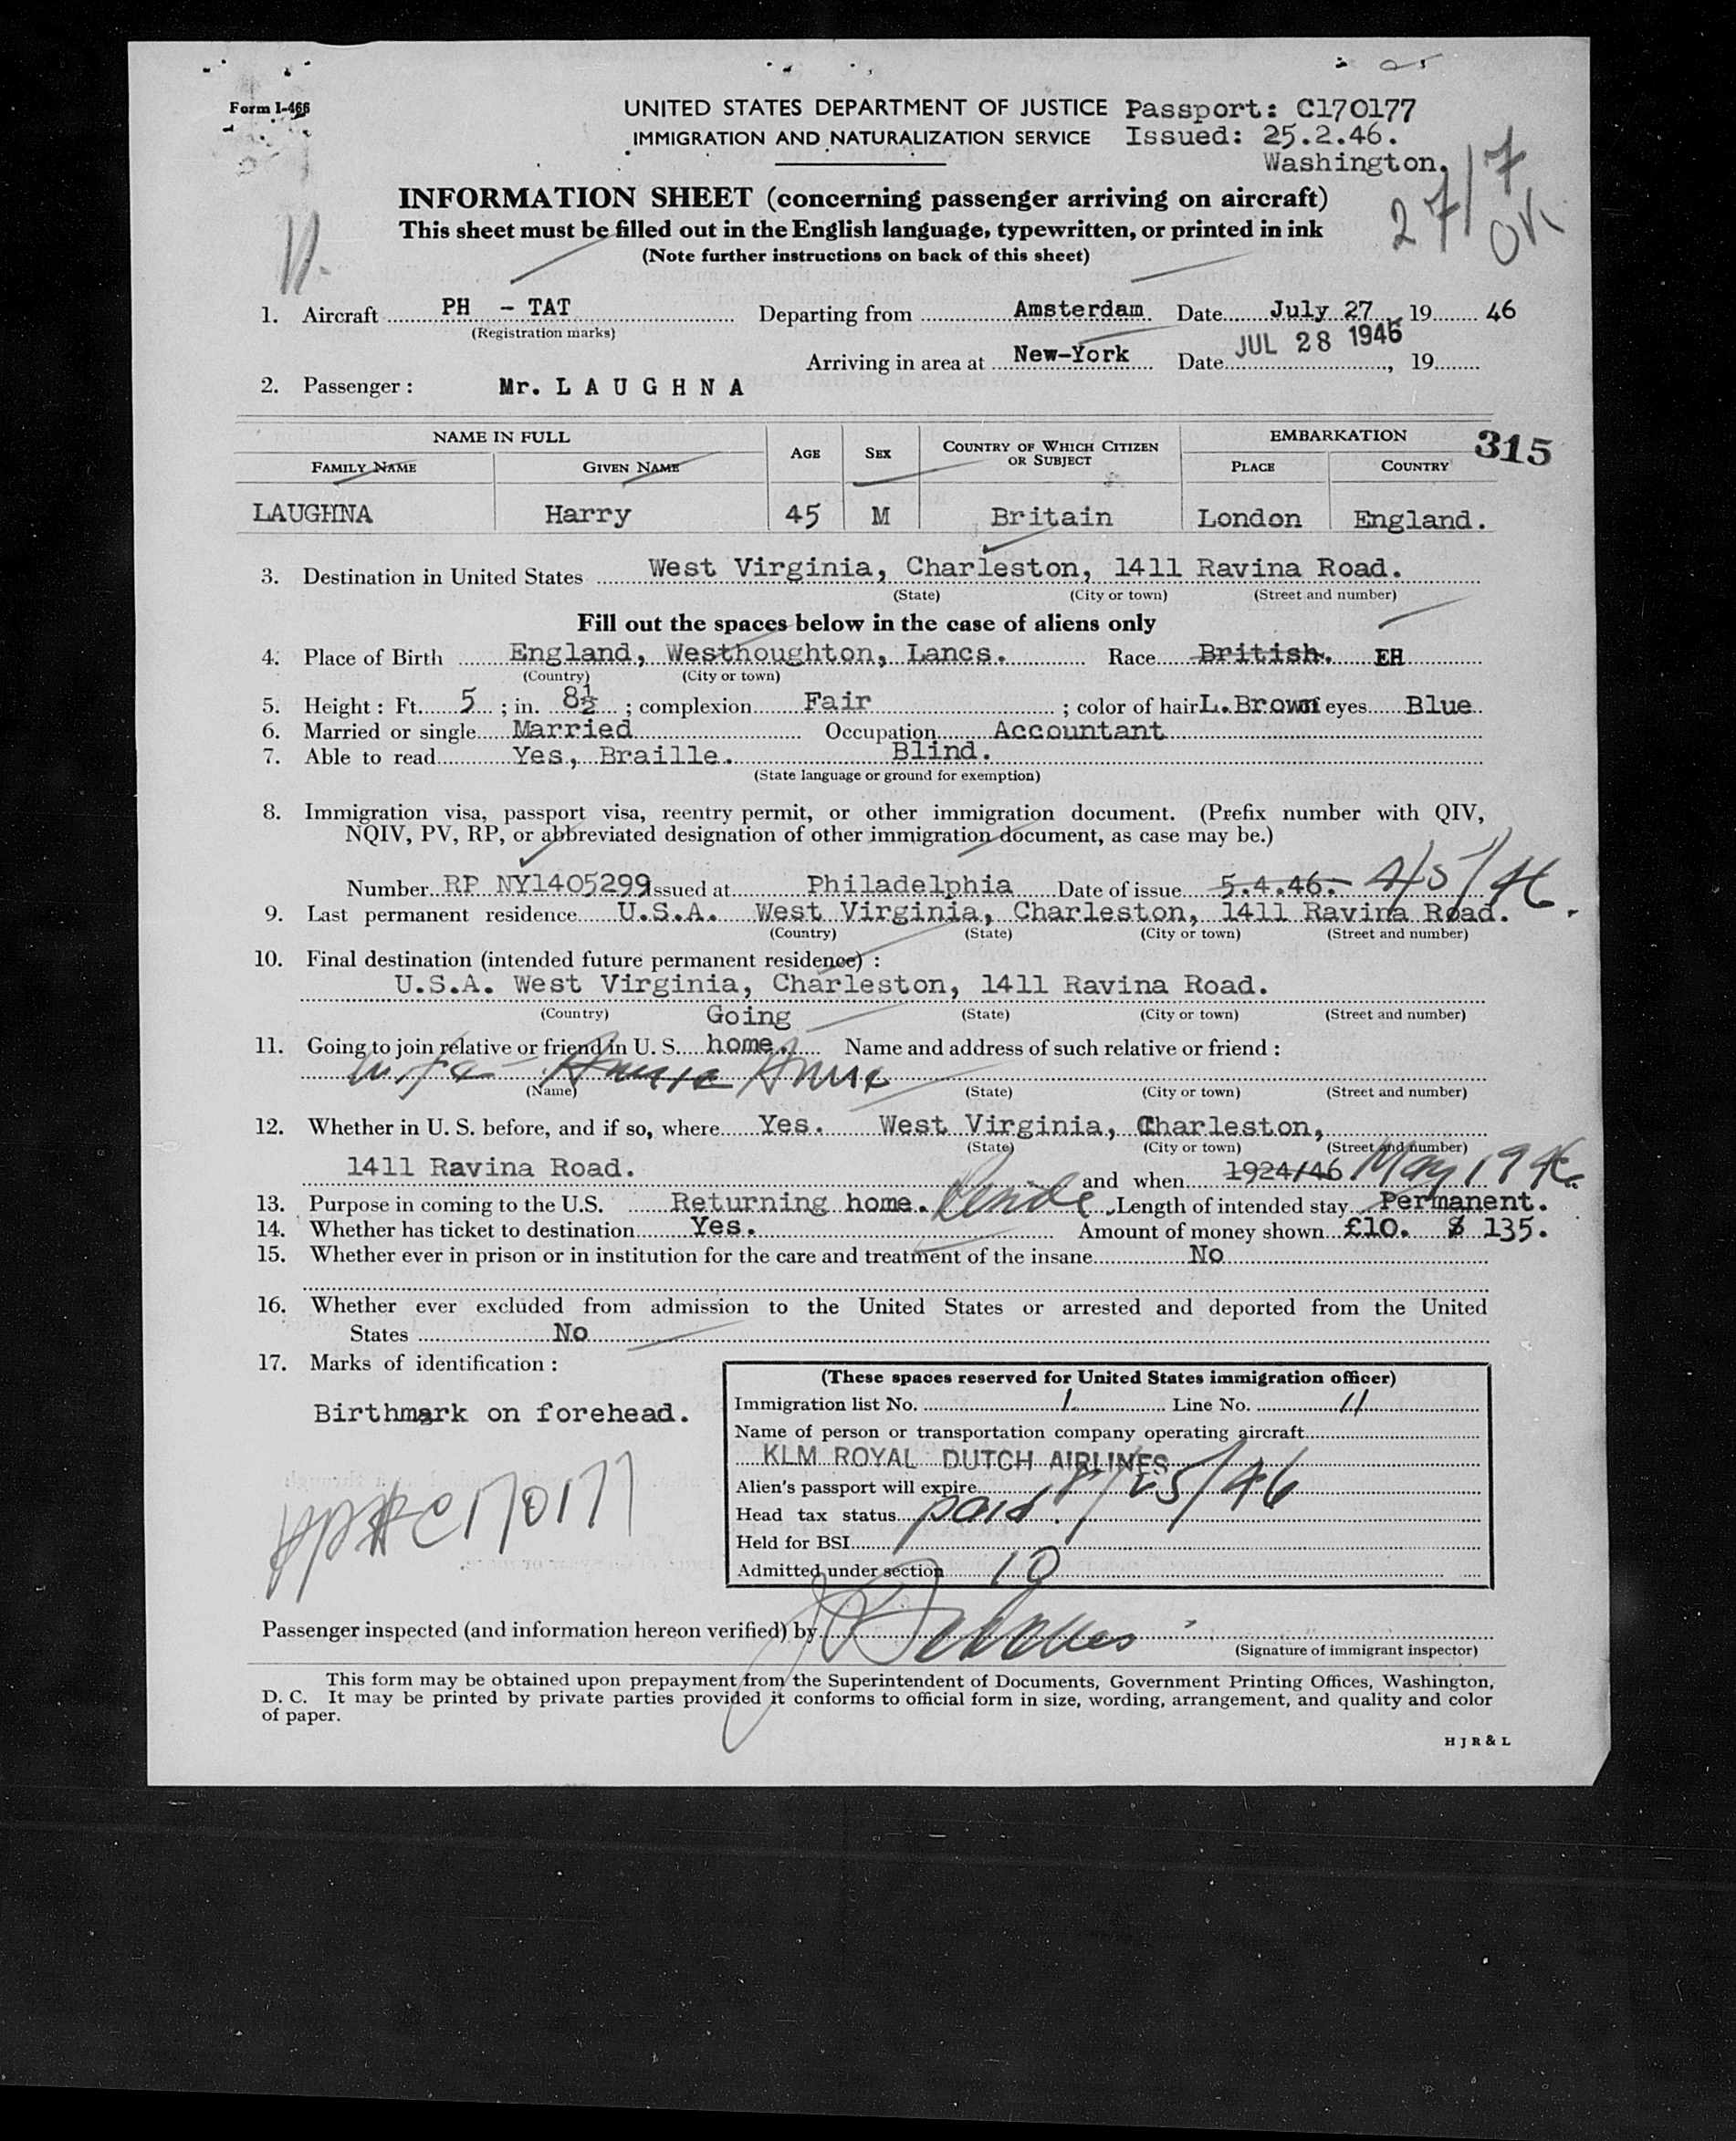 Form I-466
UNITED STATES DEPARTMENT OF JUSTICE Passport: C170177
IMMIGRATION AND NATURALIZATION SERVICE Issued: 25.2.46.
Washington.
27/7
OK
INFORMATION SHEET (concerning passenger arriving on aircraft)
This sheet must be filled out in the English language, typewritten, or printed in ink
(Note further instructions on back of this sheet)
1. Aircraft PH - TAT Departing from Amsterdam Date July 27, 19 46
(Registration marks)
Arriving in area at New-York Date JUL 28 1946, 19
2. Passenger : Mr. L A U G H N A
NAME IN FULL AGE SEX COUNTRY OF WHICH CITIZEN OR SUBJECT EMBARKATION 315
FAMILY NAME GIVEN NAME PLACE COUNTRY
LAUGHNA Harry 45 M Britain London England.
3. Destination in United States West Virginia, Charleston, 1411 Ravina Road.
(State) (City or town) (Street and number)
Fill out the spaces below in the case of aliens only
4. Place of Birth England, Westhoughton, Lancs. Race British. EH
(Country) (City or town)
5. Height : Ft. 5 ; in. 8½ ; complexion Fair ; color of hair L. Brown of eyes Blue
6. Married or single Married Occupation Accountant
7. Able to read Yes, Braille. Blind.
(State language or ground for exemption)
8. Immigration visa, passport visa, reentry permit, or other immigration document. (Prefix number with QIV,
NQIV, PV, RP, or abbreviated designation of other immigration document, as case may be.)
Number RP NY1405299 issued at Philadelphia Date of issue 5.4.46. 4/5/46
9. Last permanent residence U.S.A. West Virginia, Charleston, 1411 Ravina Road.
(Country) (State) (City or town) (Street and number)
10. Final destination (intended future permanent residence) :
U.S.A. West Virginia, Charleston, 1411 Ravina Road.
(Country) (State) (City or town) (Street and number)
Going
11. Going to join relative or friend in U. S. home. Name and address of such relative or friend :
wife Annie Anne
(Name) (State) (City or town) (Street and number)
12. Whether in U. S. before, and if so, where Yes. West Virginia, Charleston,
(State) (City or town) (Street and number)
1411 Ravina Road. and when 1924/46 May 1946
13. Purpose in coming to the U.S. Returning home. Reside Length of intended stay Permanent.
14. Whether has ticket to destination Yes. Amount of money shown £10. $ 135.
15. Whether ever in prison or in institution for the care and treatment of the insane No
16. Whether ever excluded from admission to the United States or arrested and deported from the United
States No
17. Marks of identification :
Birthmark on forehead.
(These spaces reserved for United States immigration officer)
Immigration list No. 1 Line No. 11
Name of person or transportation company operating aircraft
KLM ROYAL DUTCH AIRLINES
Alien's passport will expire /25/46
Head tax status paid.
Held for BSI
Admitted under section 10
C170177
Passenger inspected (and information hereon verified) by
(Signature of immigrant inspector)
This form may be obtained upon prepayment from the Superintendent of Documents, Government Printing Offices, Washington,
D. C. It may be printed by private parties provided it conforms to official form in size, wording, arrangement, and quality and color
of paper.
H J R & L